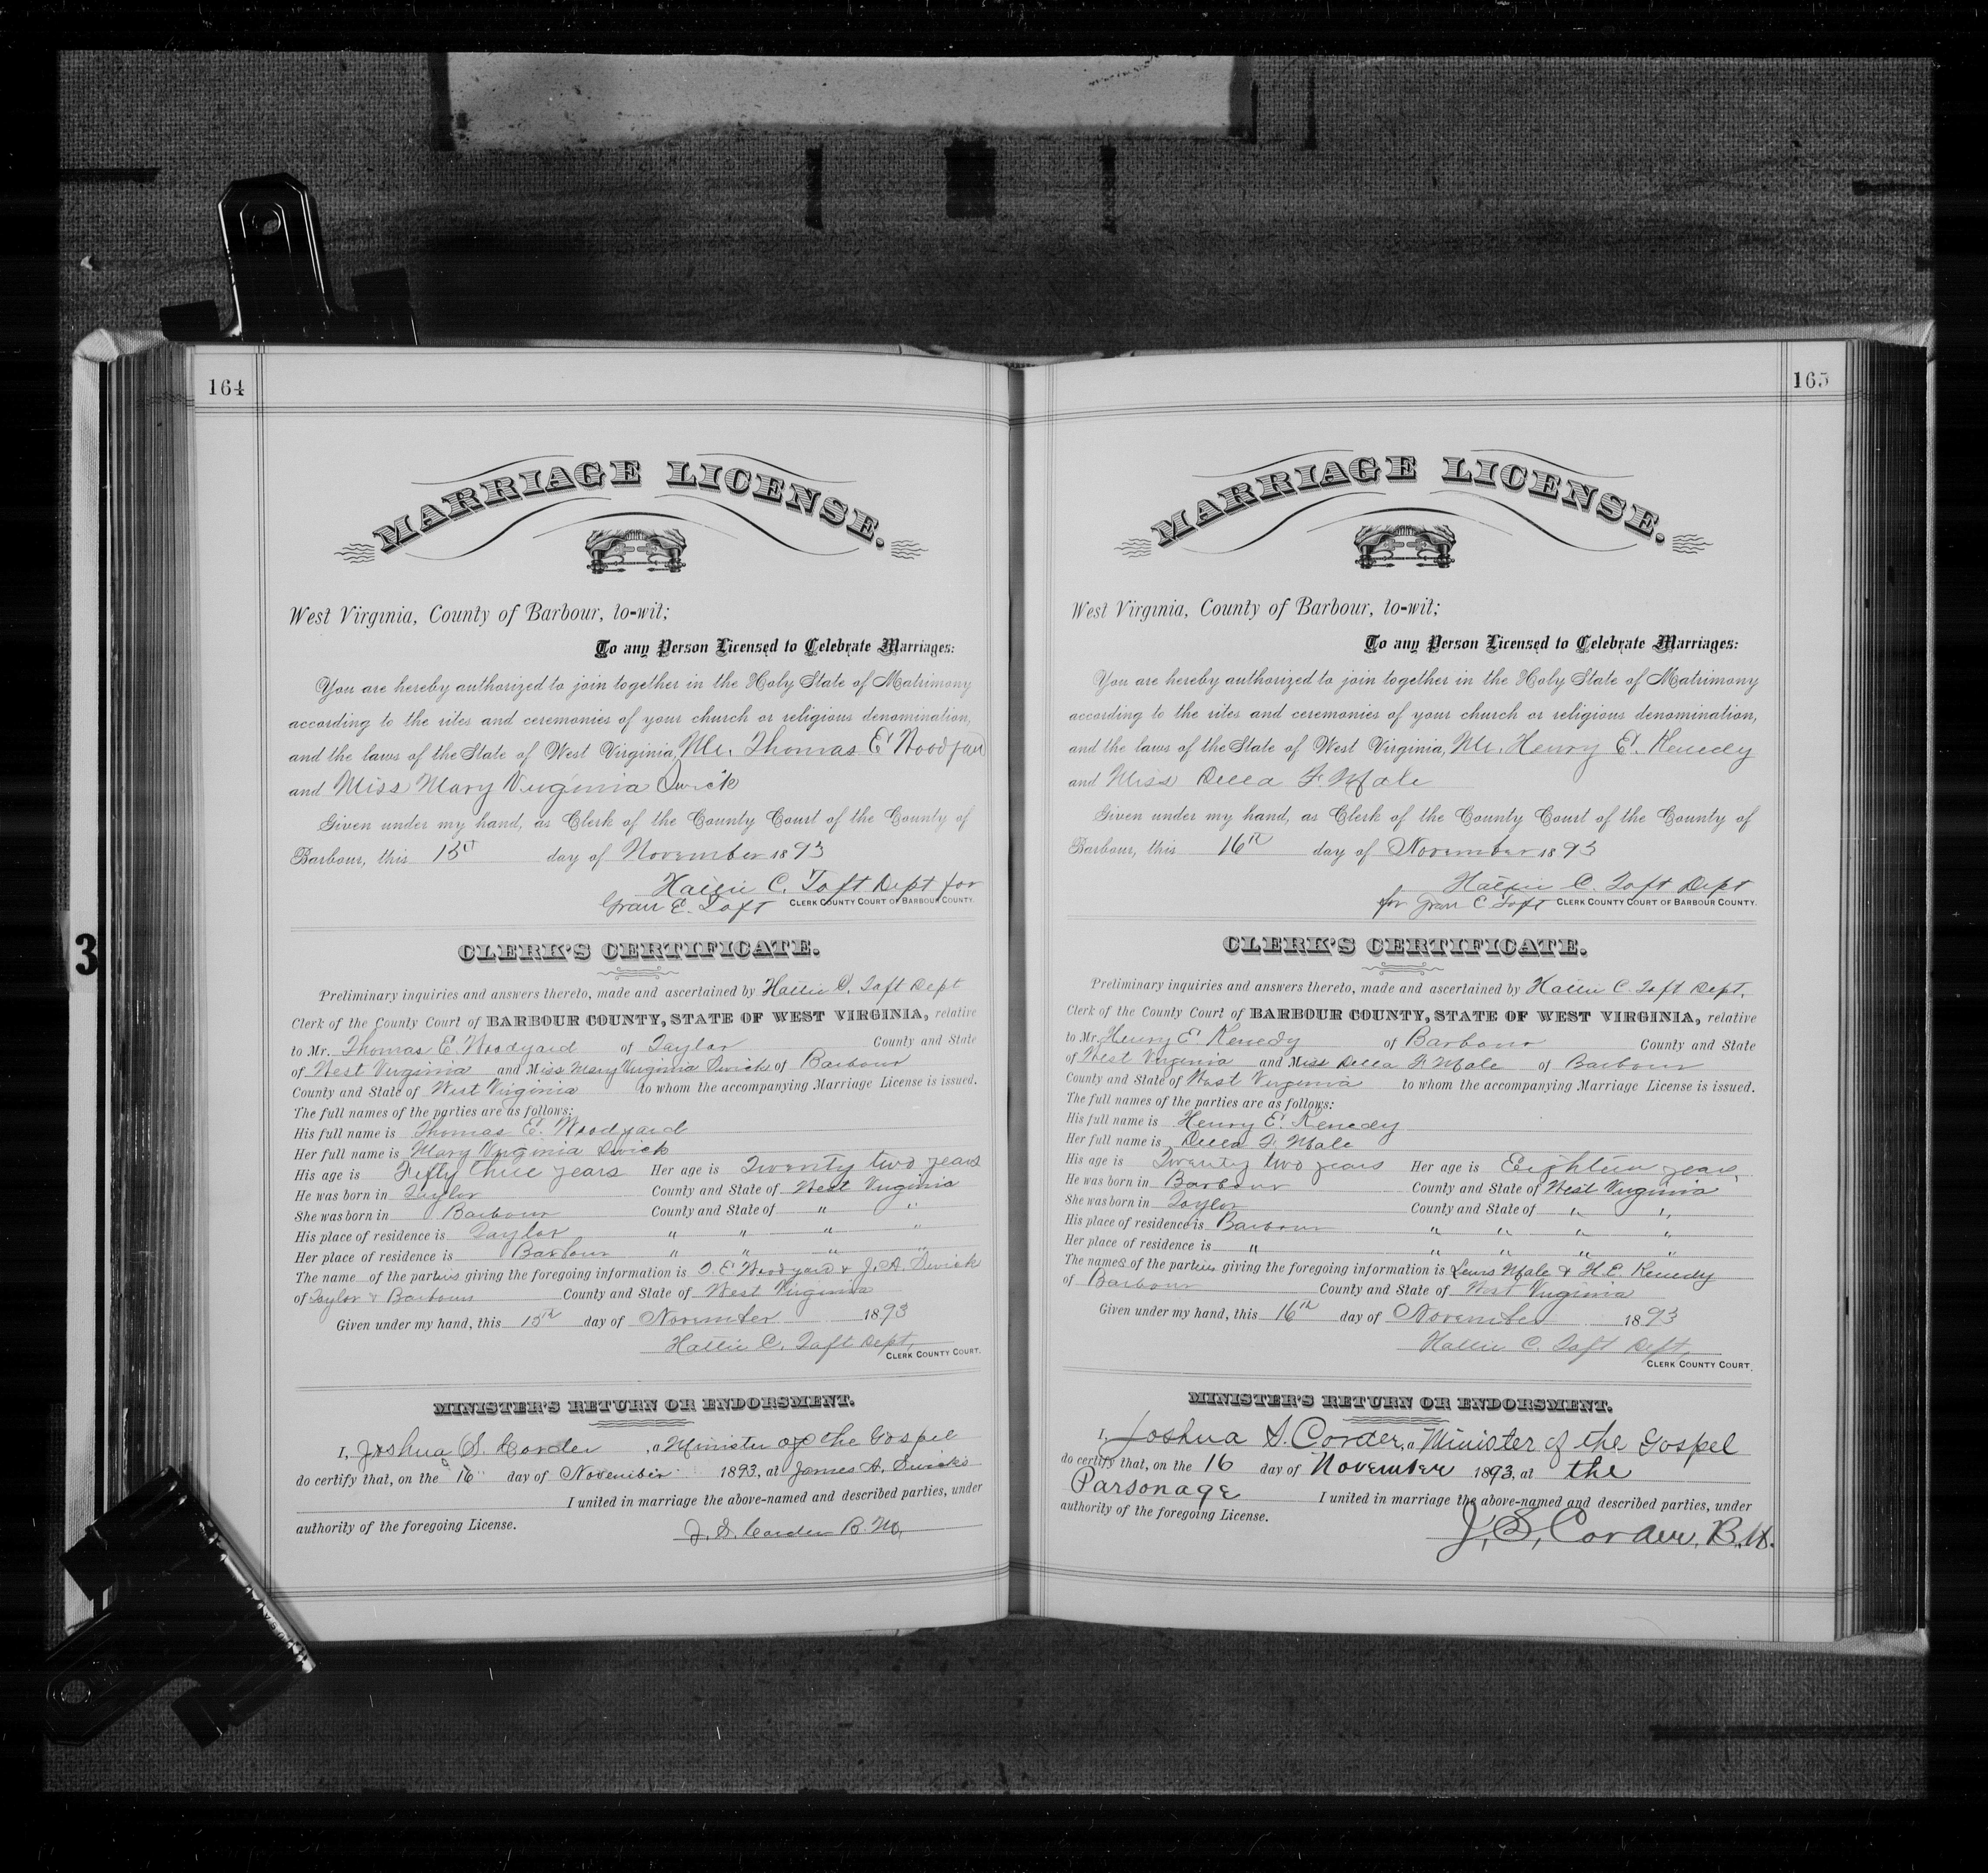 164
MARRIAGE LICENSE.
West Virginia, County of Barbour, to-wit;
To any Person Licensed to Celebrate Marriages:
You are hereby authorized to join together in the Holy State of Matrimony
according to the rites and ceremonies of your church or religious denomination,
and the laws of the State of West Virginia, Mr. Thomas E Woodyard
and Miss Mary Virginia Swick
Given under my hand, as Clerk of the County Court of the County of
Barbour, this 15th day of November 1893
Hallie C. Taft Dept for
Gran E. Taft CLERK COUNTY COURT OF BARBOUR COUNTY.
CLERK'S CERTIFICATE.
Preliminary inquiries and answers thereto, made and ascertained by Hallie C. Taft Dept
Clerk of the County Court of BARBOUR COUNTY, STATE OF WEST VIRGINIA, relative
to Mr. Thomas E. Woodyard of Taylor County and State
of West Virginia and Miss Mary Virginia Swick of Barbour
County and State of West Virginia to whom the accompanying Marriage License is issued.
The full names of the parties are as follows:
His full name is Thomas E. Woodyard
Her full name is Mary Virginia Swick
His age is Fifty three years Her age is Twenty two years
He was born in Taylor County and State of West Virginia
She was born in Barbour County and State of " "
His place of residence is Taylor " " " "
Her place of residence is Barbour " " " "
The name of the parties giving the foregoing information is T. E Woodyard & J. A. Swick
of Taylor & Barbour County and State of West Virginia
Given under my hand, this 15th day of November 1893
Hallie C. Taft Dept,
CLERK COUNTY COURT.
MINISTER'S RETURN OR ENDORSMENT.
I, Joshua S. Corder, a Minister of the Gospel
do certify that, on the 16 day of November 1893, at James A. Swicks
I united in marriage the above-named and described parties, under
authority of the foregoing License.
J. S. Corder B. M.
165
MARRIAGE LICENSE.
West Virginia, County of Barbour, to-wit;
To any Person Licensed to Celebrate Marriages:
You are hereby authorized to join together in the Holy State of Matrimony
according to the rites and ceremonies of your church or religious denomination,
and the laws of the State of West Virginia, Mr. Henry E. Kenedy
and Miss Della F. Male
Given under my hand, as Clerk of the County Court of the County of
Barbour, this 16th day of November 1893
Hallie C. Taft Dept
for Gran E Taft CLERK COUNTY COURT OF BARBOUR COUNTY.
CLERK'S CERTIFICATE.
Preliminary inquiries and answers thereto, made and ascertained by Hallie C. Taft Dept.
Clerk of the County Court of BARBOUR COUNTY, STATE OF WEST VIRGINIA, relative
to Mr. Henry E. Kenedy of Barbour County and State
of West Virginia and Miss Della F Male of Barbour
County and State of West Virginia to whom the accompanying Marriage License is issued.
The full names of the parties are as follows:
His full name is Henry E. Kenedy
Her full name is Della F. Male
His age is Twenty two years Her age is Eighteen years,
He was born in Barbour County and State of West Virginia
She was born in Taylor County and State of " "
His place of residence is Barbour " " " "
Her place of residence is " " " " "
The names of the parties giving the foregoing information is Lewis Male & H. E. Kenedy
of Barbour County and State of West Virginia
Given under my hand, this 16th day of November 1893
Hallie C. Taft Dept,
CLERK COUNTY COURT.
MINISTER'S RETURN OR ENDORSMENT.
I, Joshua S. Corder, a Minister of the Gospel
do certify that, on the 16 day of November 1893, at the
Parsonage I united in marriage the above-named and described parties, under
authority of the foregoing License.
J. S. Corder, B. M.
3